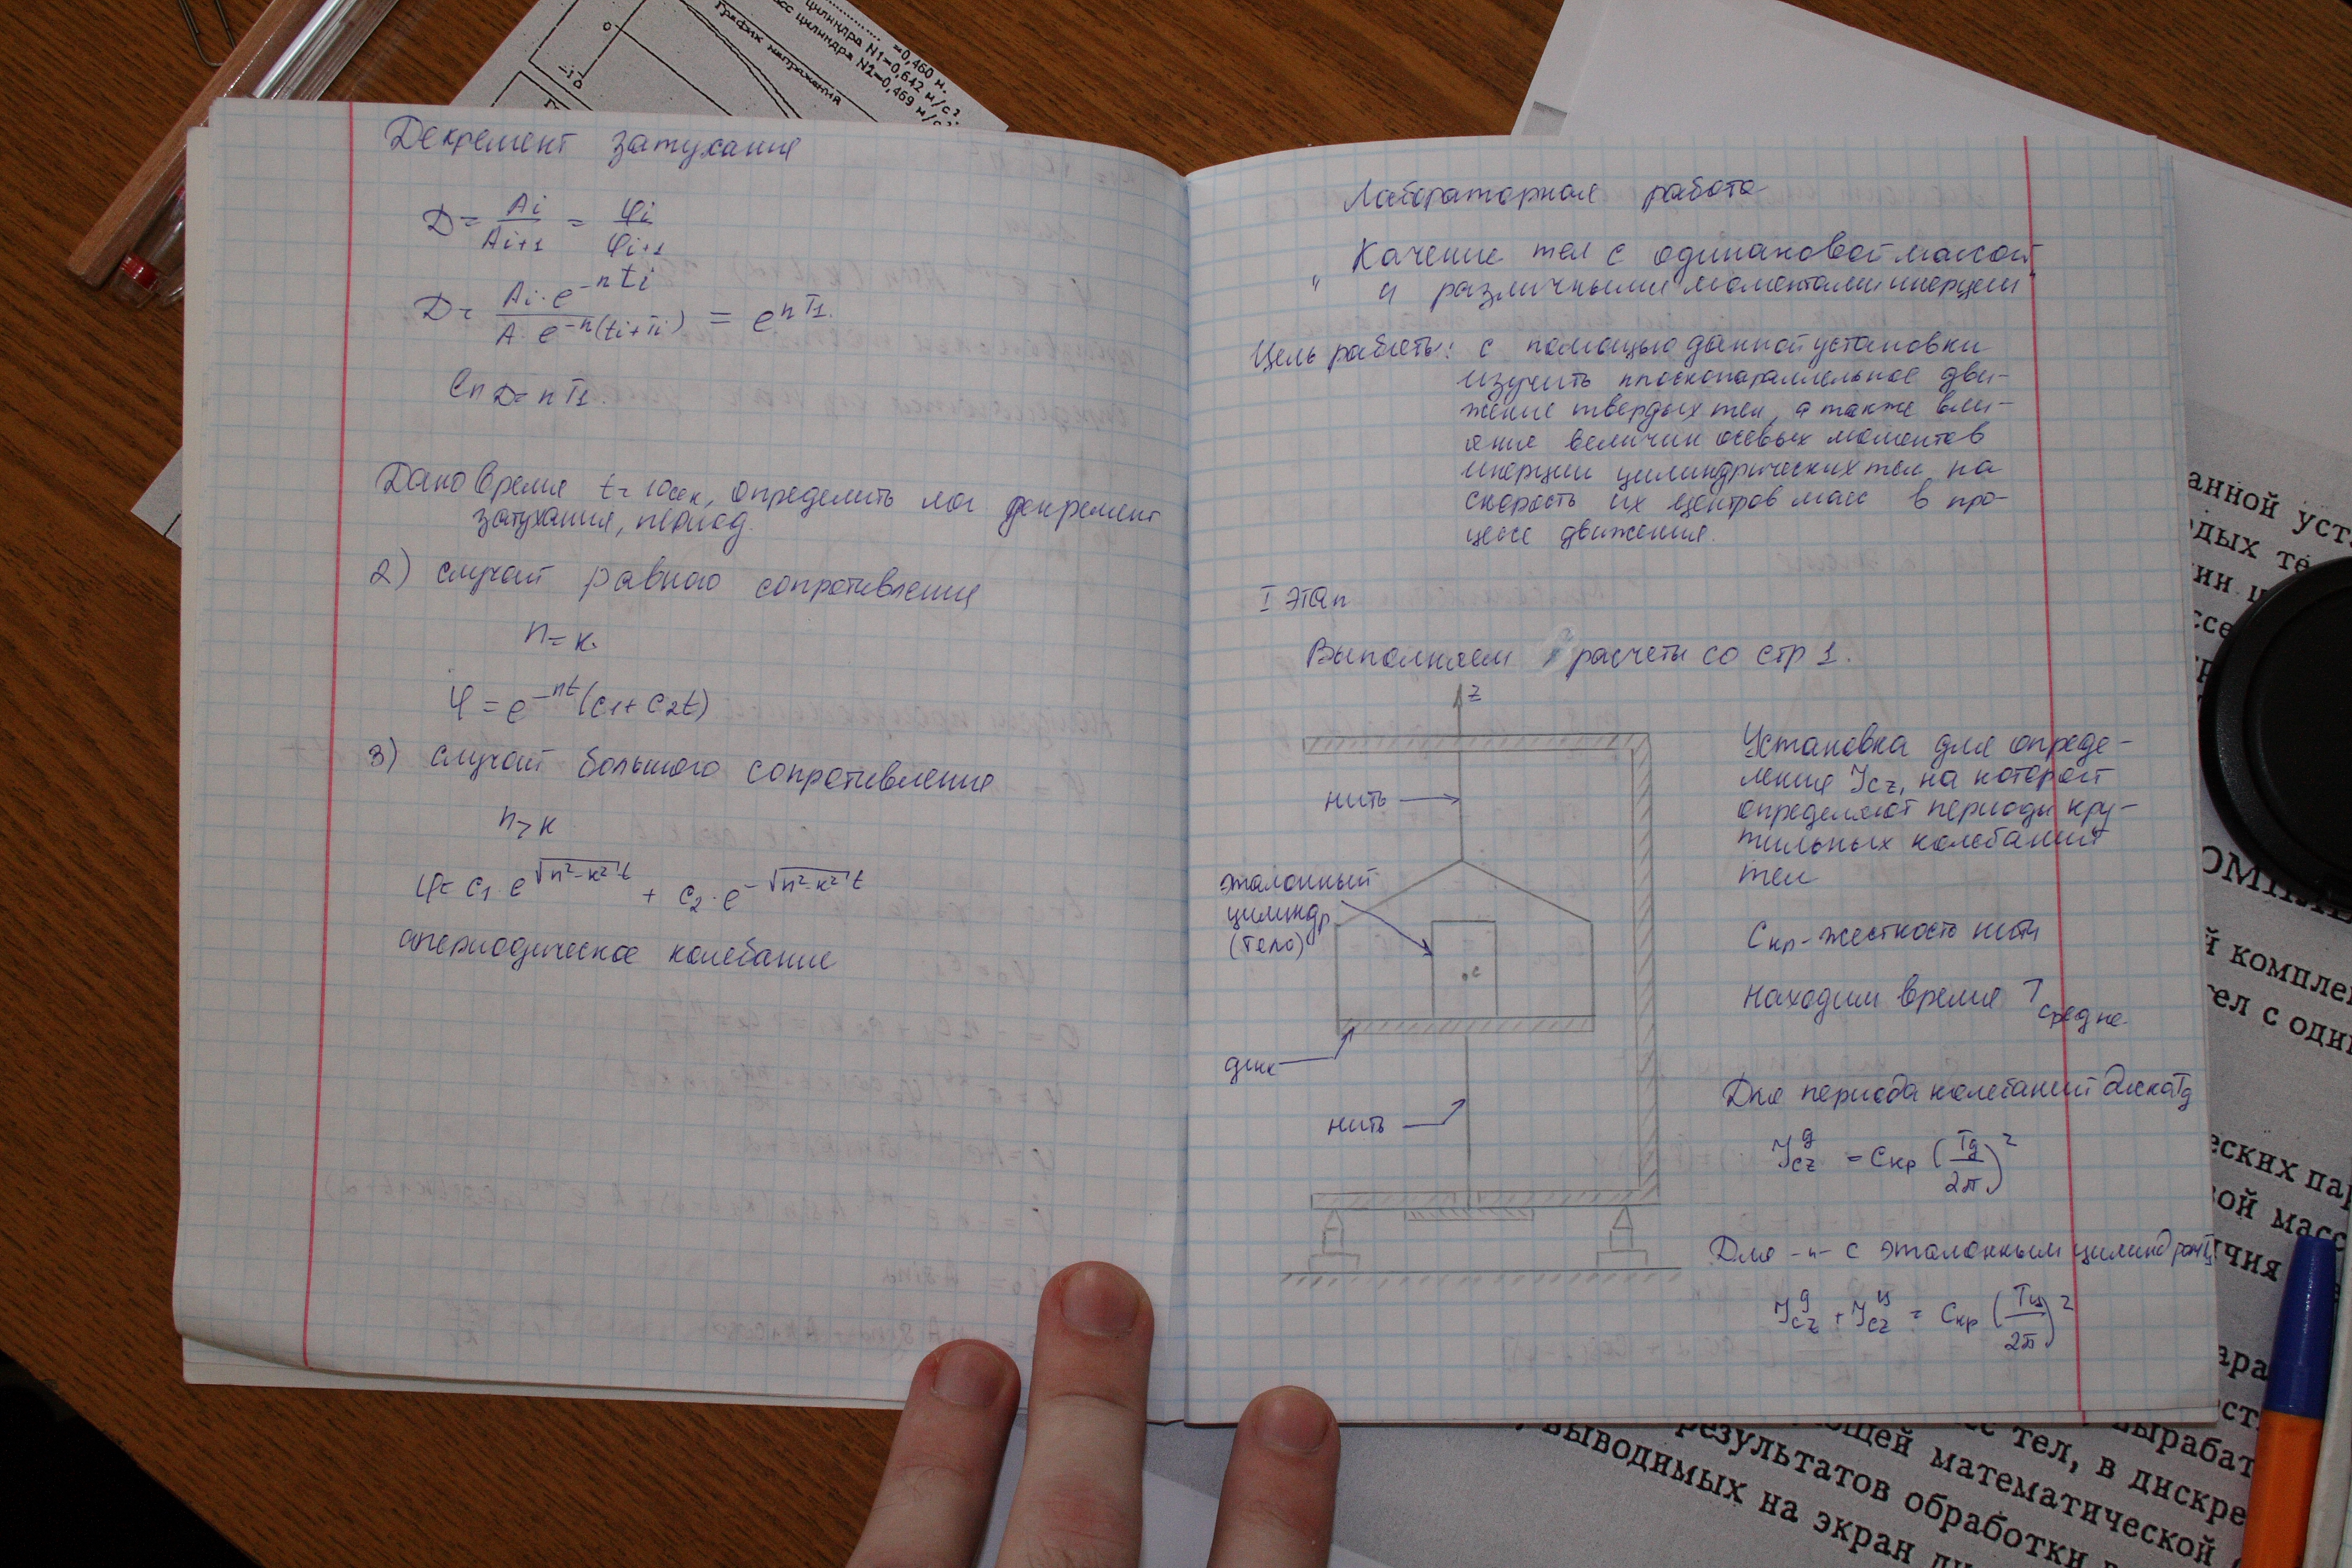 Декремент затухания
D = Ai / Ai+1 = φi / φi+1
D = Ai · e^-nti / A · e^-n(ti+Ti) = e^nT1.
ln D = nT1.
Дано время t = 10сек, определить лог декремент
затухания, период.
2) случай равного сопротивления
n = k.
φ = e^-nt (c1 + c2t)
3) случай большого сопротивления
n > k
φ = c1 · e^√(n²-k²)t + c2 · e^-√(n²-k²)t
апериодическое колебание
Лабораторная работа
„Качение тел с одинаковой массой
и различными моментами инерции"
Цель работы: с помощью данной установки
изучить плоскопараллельное дви-
жение твердых тел, а также вли-
яние величин осевых моментов
инерции цилиндрических тел на
скорость их центров масс в про-
цессе движения.
I этап
Выполняем расчеты со стр 1.
z
нить
эталонный
цилиндр
(тело)
c
диск
нить
Установка для опреде-
ления Jcz, на которой
определяют периоды кру-
тильных колебаний
тел
Cкр - жесткость нити
находим время T
средне
Для периода колебаний диска Tд
Jcz^д = Cкр (Tд / 2π)²
Для -"- с эталонным цилиндром Tц
Jcz^д + Jcz^ц = Cкр (Tц / 2π)²
=0,460 м.
цилиндра N1=0,642 м/с²
сс цилиндра N2=0,469 м/с²
График напряжения
0
-i
0
анной уст
дых те
ин
ссе
ОМПЛЕ
й компле
тел с один
еских пар
вой масс
ичия
ара
ост
вырабат
с тел, в дискре
ющей математической
результатов обработки
выводимых на экран ди